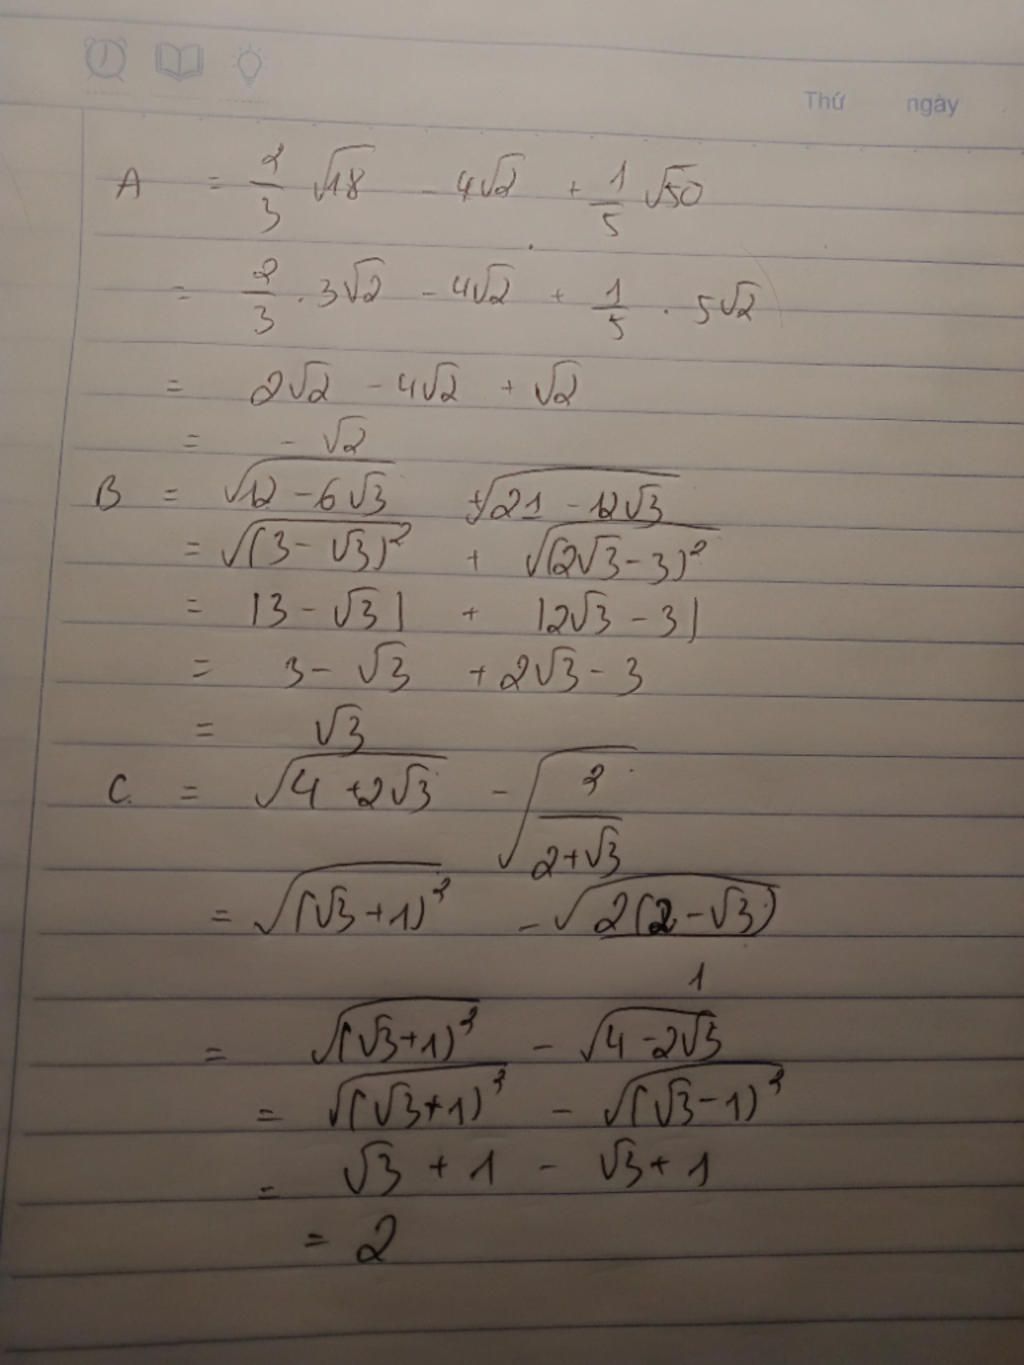 Thứ ngày
A = 2/3 √18 - 4√2 + 1/5 √50
= 2/3 . 3√2 - 4√2 + 1/5 . 5√2
= 2√2 - 4√2 + √2
= - √2
B = √(12 - 6√3) + √(21 - 12√3)
= √((3 - √3)²) + √((2√3 - 3)²)
= |3 - √3| + |2√3 - 3|
= 3 - √3 + 2√3 - 3
= √3
C. = √(4 + 2√3) - √(2/(2 + √3))
= √((√3 + 1)²) - √(2(2 - √3)/1)
= √((√3 + 1)²) - √(4 - 2√3)
= √((√3 + 1)²) - √((√3 - 1)²)
= √3 + 1 - √3 + 1
= 2